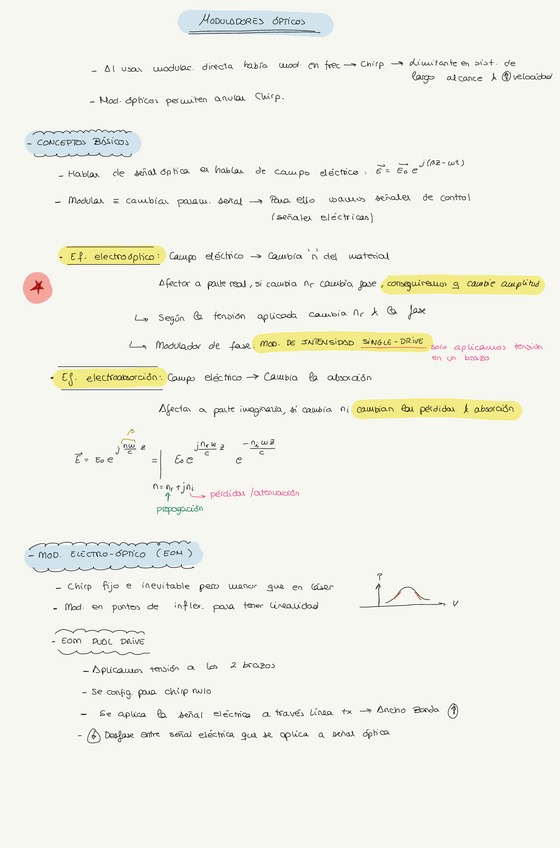 MODULADORES ÓPTICOS
- Al usar modulac. directa había mod. en frec → Chirp → limitante en sist. de
largo alcance & ↑ velocidad
- Mod. ópticos permiten anular Chirp.
- CONCEPTOS BÁSICOS
- Hablar de señal óptica es hablar de campo eléctrico: E⃗ = E⃗₀ e^j(βz-ωt)
- Modular = cambiar param. señal → Para ello usamos señales de control
(señales eléctricas)
- Ef. electroóptico: Campo eléctrico → Cambia 'n' del material
Afectar a parte real, si cambia nr cambia fase, conseguiremos q cambie amplitud
↳ Según la tensión aplicada cambia nr & la fase
↳ Modulador de fase. MOD. DE INTENSIDAD SINGLE-DRIVE solo aplicamos tensión
en un brazo
- Ef. electroabsorción: Campo eléctrico → Cambia la absorción
Afectar a parte imaginaria, si cambia ni cambian las pérdidas & absorción
β
E⃗ = E₀ e^(j nω/c z) = | E₀ e^(j nr ω/c z) e^(-ni ω z/c)
n = nr + j ni
→ pérdidas / atenuación
propagación
- MOD. ELECTRO-ÓPTICO (EOM)
- Chirp fijo e inevitable pero menor que en láser
P
- Mod. en puntos de inflex. para tener linealidad
V
- EOM DUAL DRIVE
- Aplicamos tensión a los 2 brazos
- Se config. para chirp nulo
- Se aplica la señal eléctrica a través línea tx → Ancho Banda ↑
- ↓ Desfase entre señal eléctrica que se aplica a señal óptica